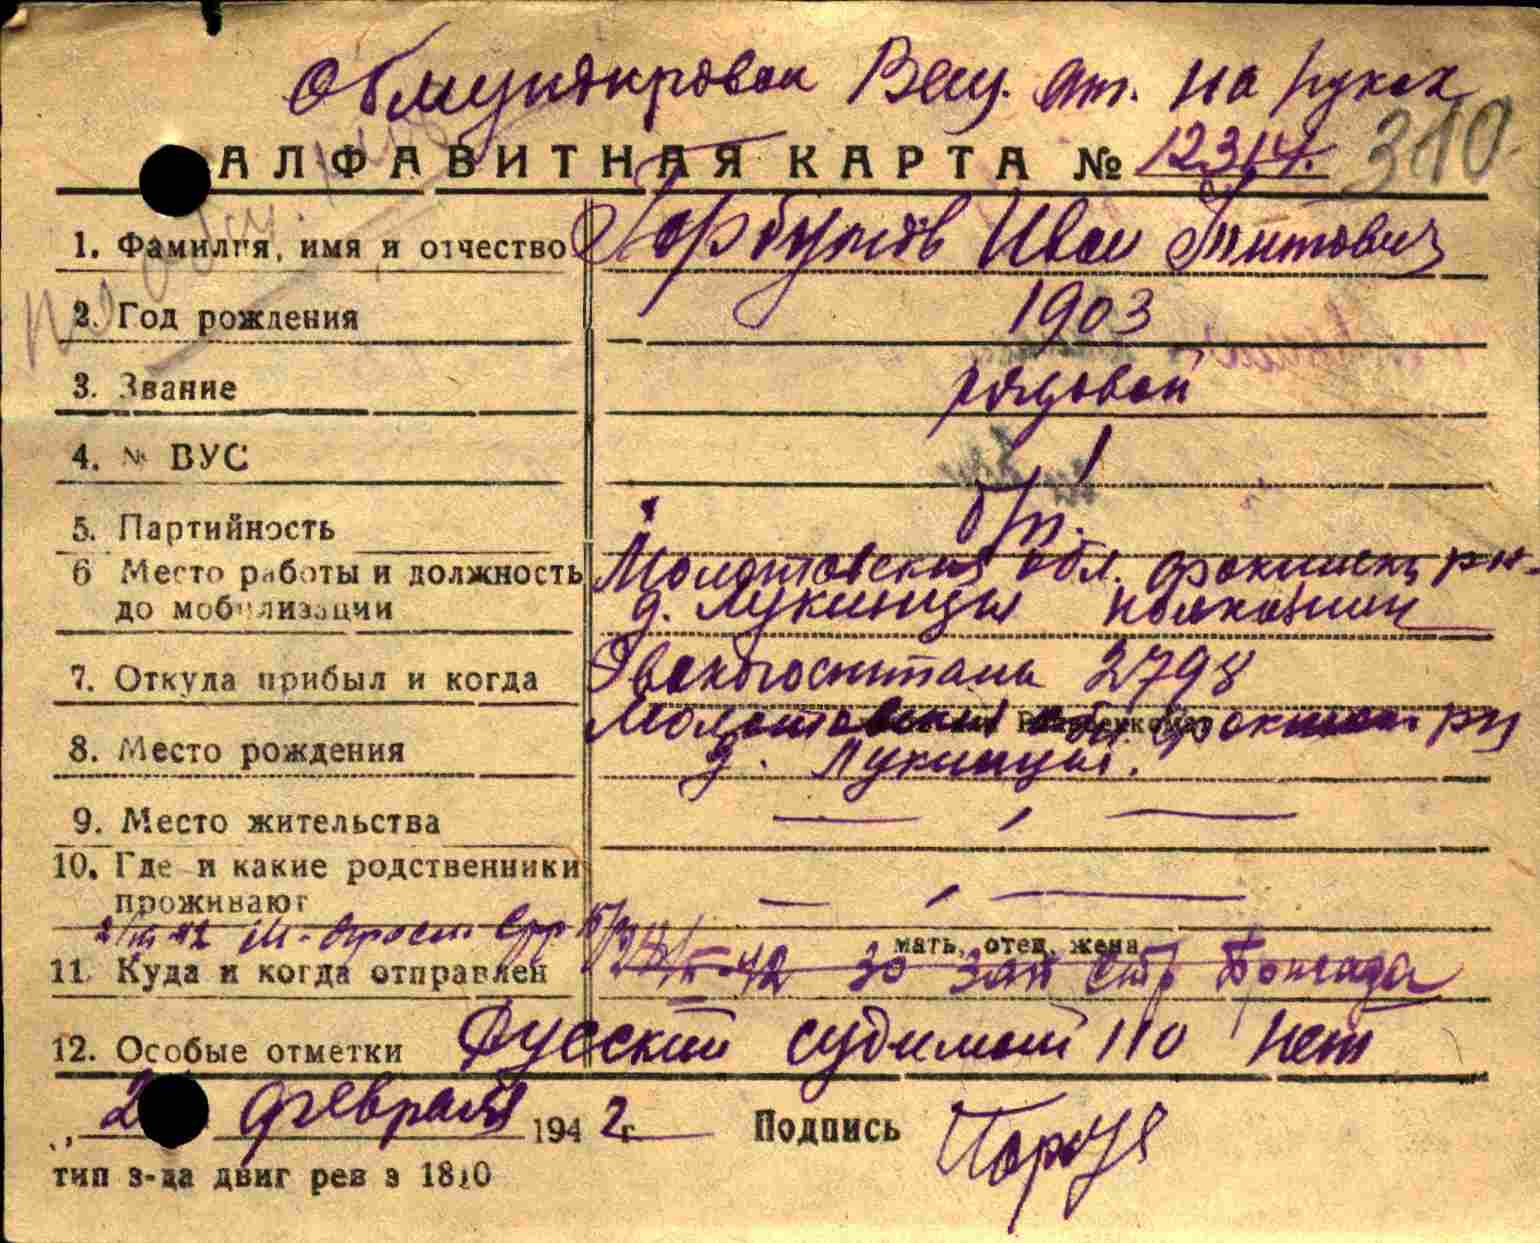 Обмундирован Вещ. ат. на руках
АЛФАВИТНАЯ КАРТА № 12314. 310
1. Фамилия, имя и отчество Горбунов Иван Титович
2. Год рождения 1903
3. Звание рядовой
4. № ВУС 1
5. Партийность б/п.
6 Место работы и должность Молотовская обл. Фокинск. р-н
до мобилизации д. Лукинцы колхозник
7. Откуда прибыл и когда Эвакогоспиталь 2798
Молотовская обл. Фокинск. рн
8. Место рождения д. Лукинцы.
9. Место жительства — " —
10. Где и какие родственники
проживают — " —
мать, отец, жена
11. Куда и когда отправлен 30 зап стр бригада
12. Особые отметки Русский судимостью нет
„ 2 февраля 1942 г. Подпись
тип з-да двиг рев з 1810